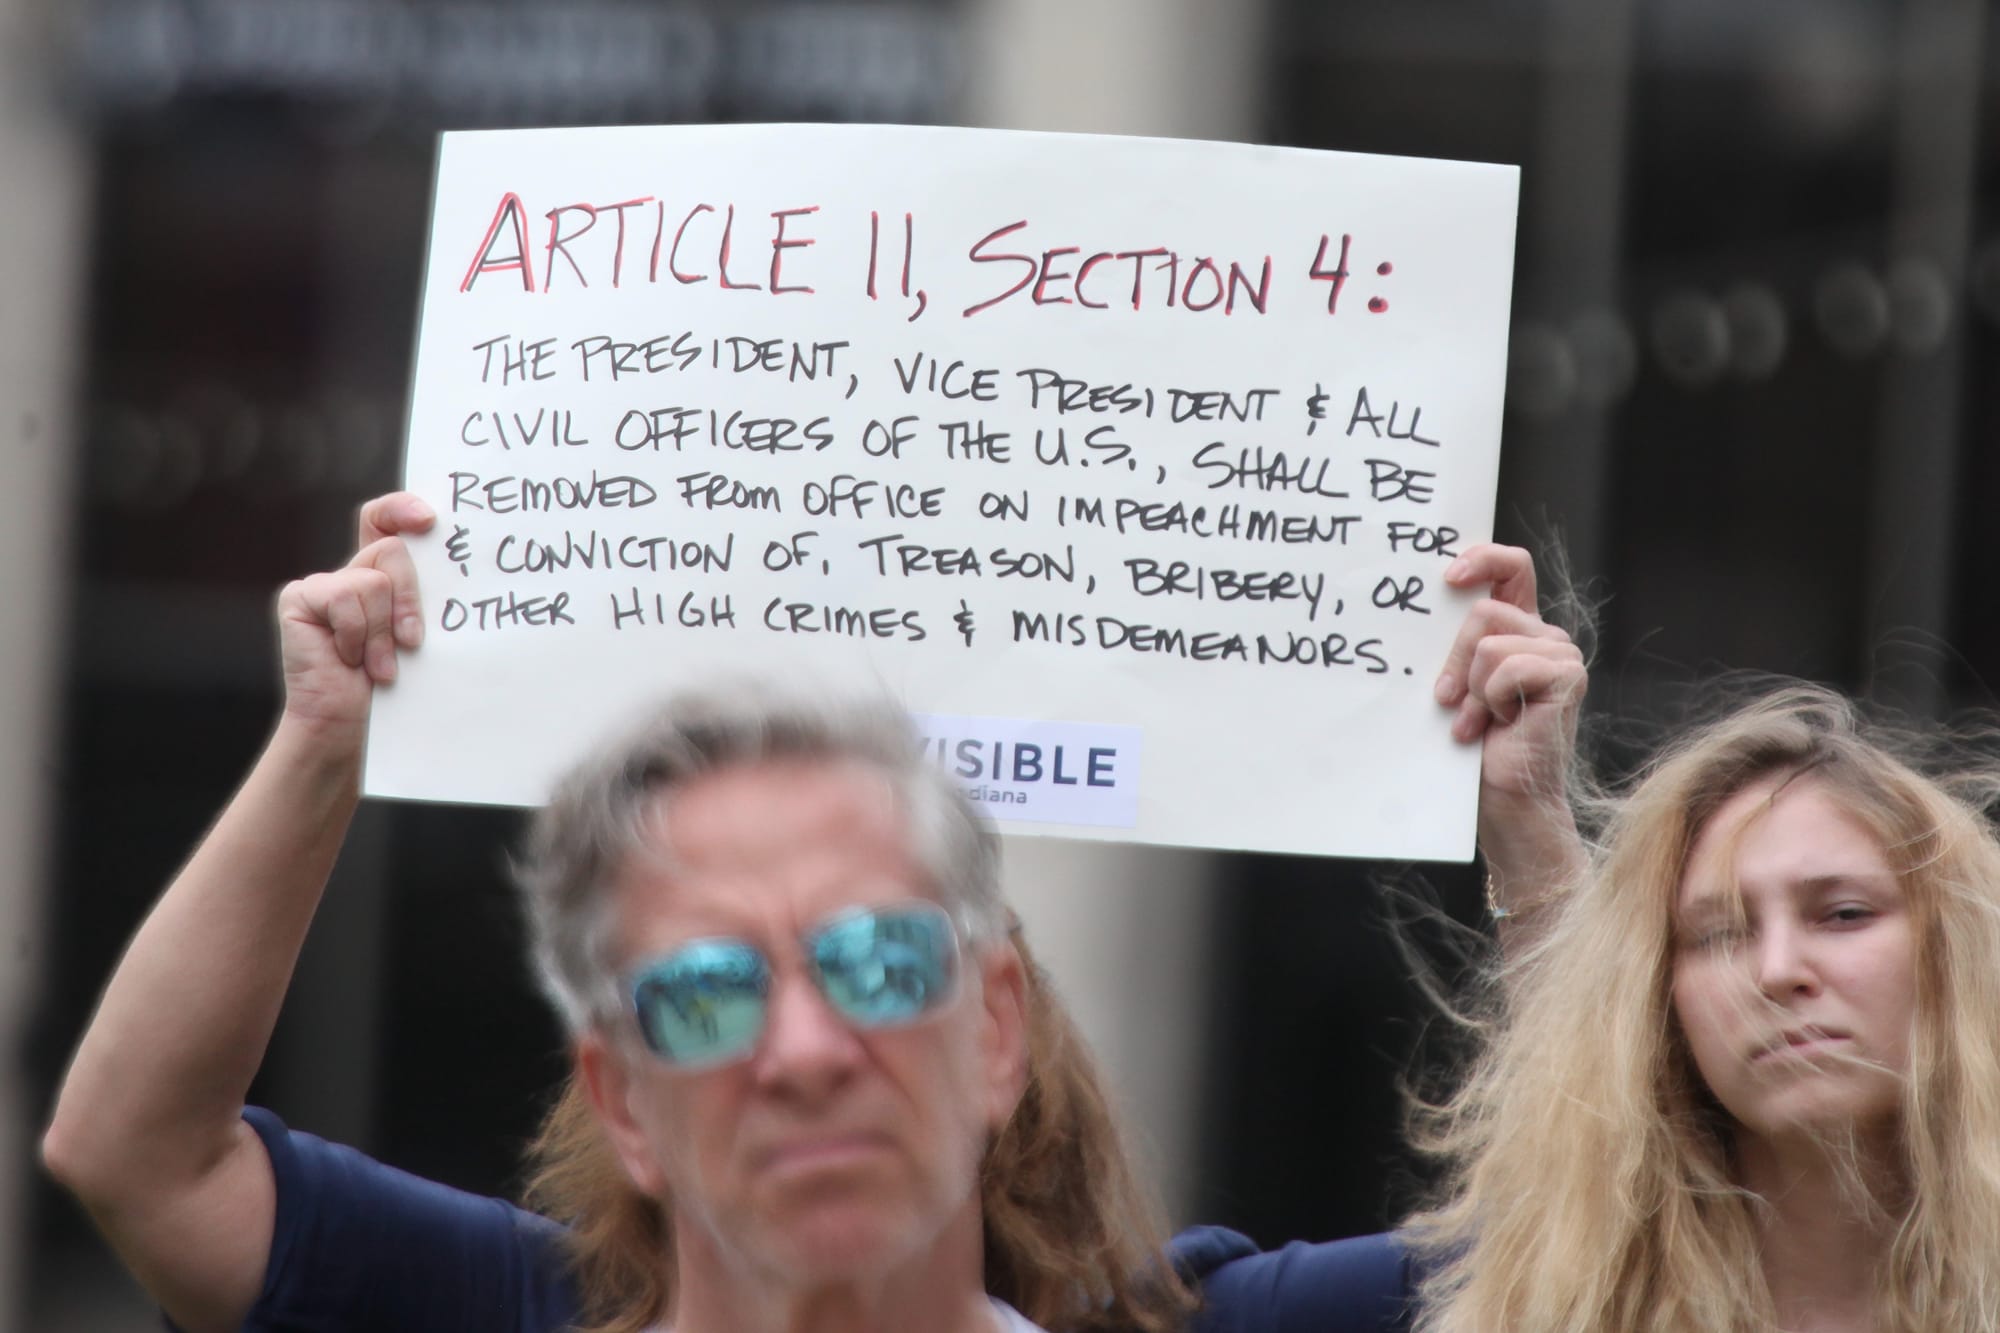 ARTICLE II, SECTION 4:
THE PRESIDENT, VICE PRESIDENT & ALL
CIVIL OFFICERS OF THE U.S., SHALL BE
REMOVED FROM OFFICE ON IMPEACHMENT FOR
& CONVICTION OF, TREASON, BRIBERY, OR
OTHER HIGH CRIMES & MISDEMEANORS.
VISIBLE
diana